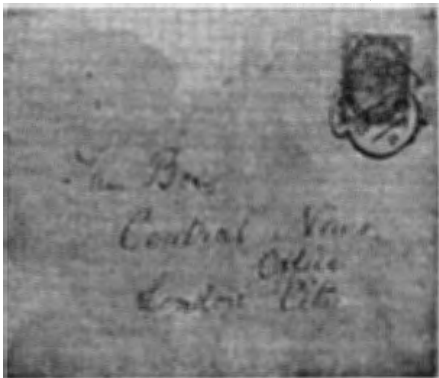 The Boss
Central News
Office
London City